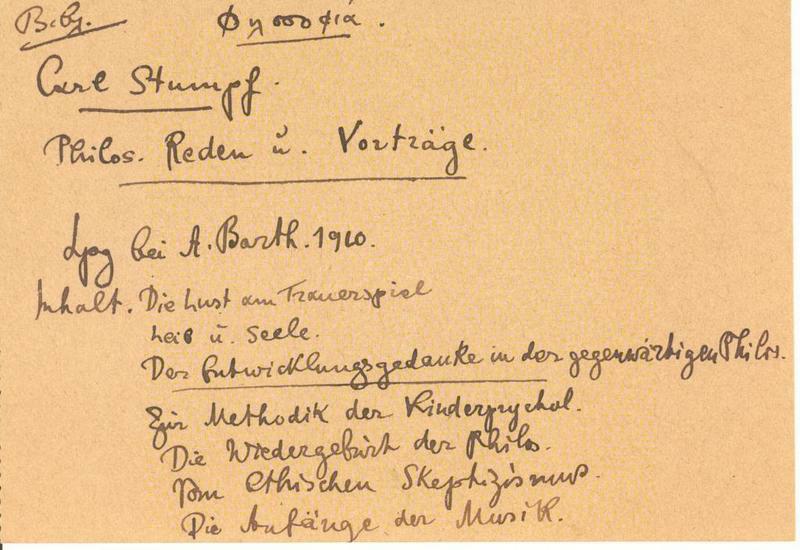 Φιλοσοφία.
Carl Stumpf.
Philos. Reden u. Vorträge.
Lpzg bei A. Barth. 1910.
Inhalt. Die Lust am Trauerspiel
Leib u. Seele.
Der Entwicklungsgedanke in der gegenwärtigen Philos.
Zur Methodik der Kinderpsychol.
Die Wiedergeburt der Philos.
Vom ethischen Skeptizismus.
Die Anfänge der Musik.